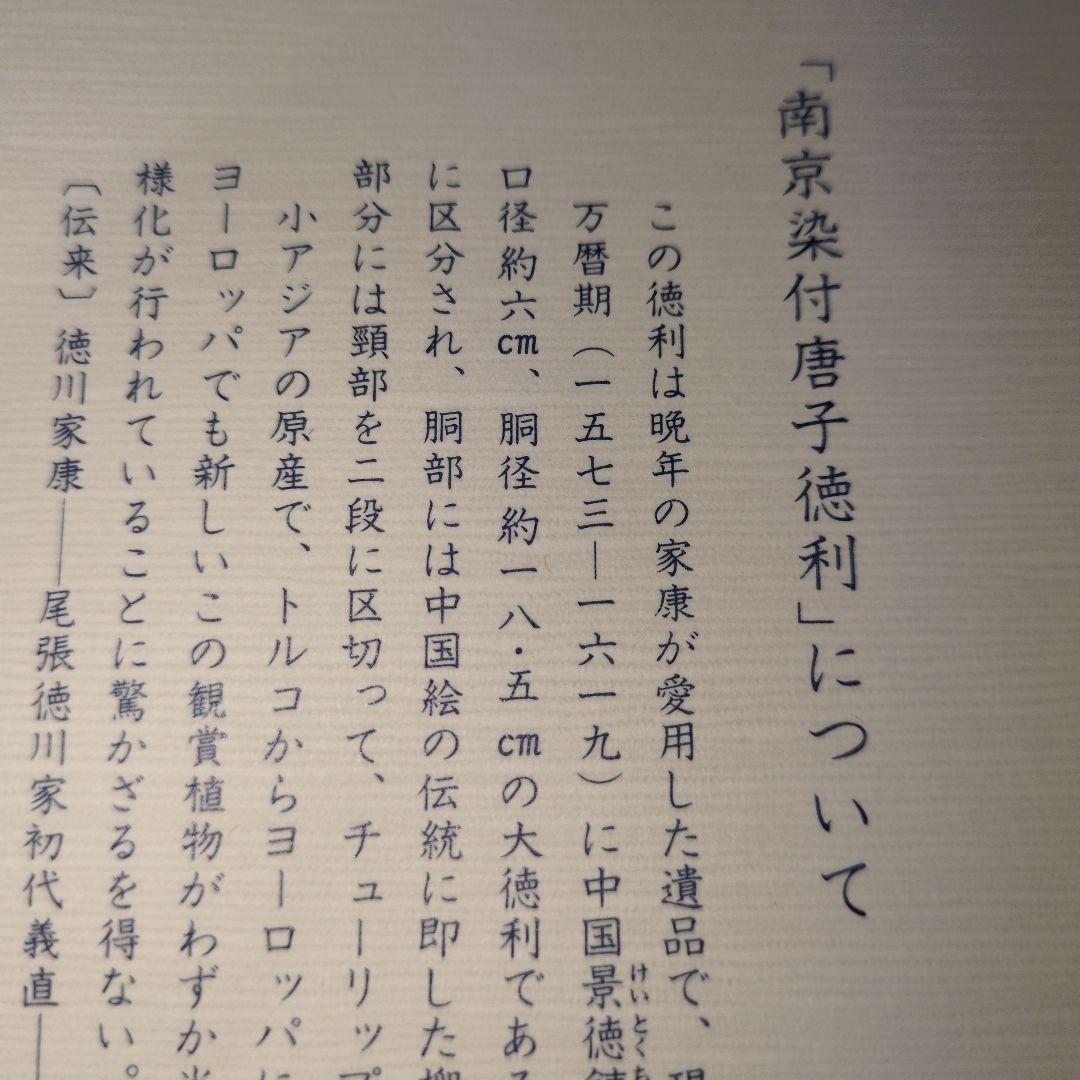 「南京染付唐子徳利」について
この徳利は晩年の家康が愛用した遺品で、
万暦期（一五七三―一六一九）に中国景徳
けいとく
口径約六cm、胴径約一八・五cmの大徳利である
に区分され、胴部には中国絵の伝統に即した
部分には頸部を二段に区切って、チューリップ
小アジアの原産で、トルコからヨーロッパに
ヨーロッパでも新しいこの観賞植物がわずか
様化が行われていることに驚かざるを得ない。
〔伝来〕徳川家康――尾張徳川家初代義直―